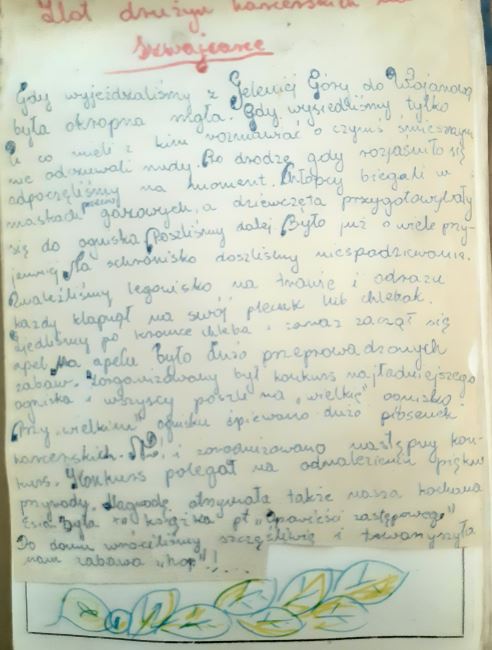 Zlot drużyn harcerskich na
Szwajcarce
Gdy wyjeżdżaliśmy z Jeleniej Góry do Wojanowa
była okropna mgła. Gdy wysiedliśmy tylko
ci co mieli z kim rozmawiać o czymś śmiesznym
nie odczuwali nudy. Po drodze gdy rozjaśniło się
odpoczęliśmy na moment. Chłopcy biegali w
maskach gazowych, a dziewczęta przygotowywały
się do ogniska. Poszliśmy dalej. Było już o wiele przy-
jemniej. Na schronisko doszliśmy niespodziewanie.
Znaleźliśmy legowisko na trawie i odrazu
każdy klapnął na swój plecak lub chlebak.
Zjedliśmy po kromce chleba i zaraz zaczął się
apel. Na apelu było dużo przeprowadzonych
zabaw. Zorganizowany był konkurs najładniejszego
ogniska i wszyscy poszli na „wielkie" ognisko.
Przy „wielkim" ognisku śpiewano dużo piosenek
harcerskich. i zorganizowano następny kon-
kurs. Konkurs polegał na odnalezieniu piękna
przyrody. Nagrodę otrzymała także nasza kochana
Esia. Była to książka pt „Opowieści zastępowego"
Do domu wróciliśmy szczęśliwie i towarzyszyła
nam zabawa „hop"!....